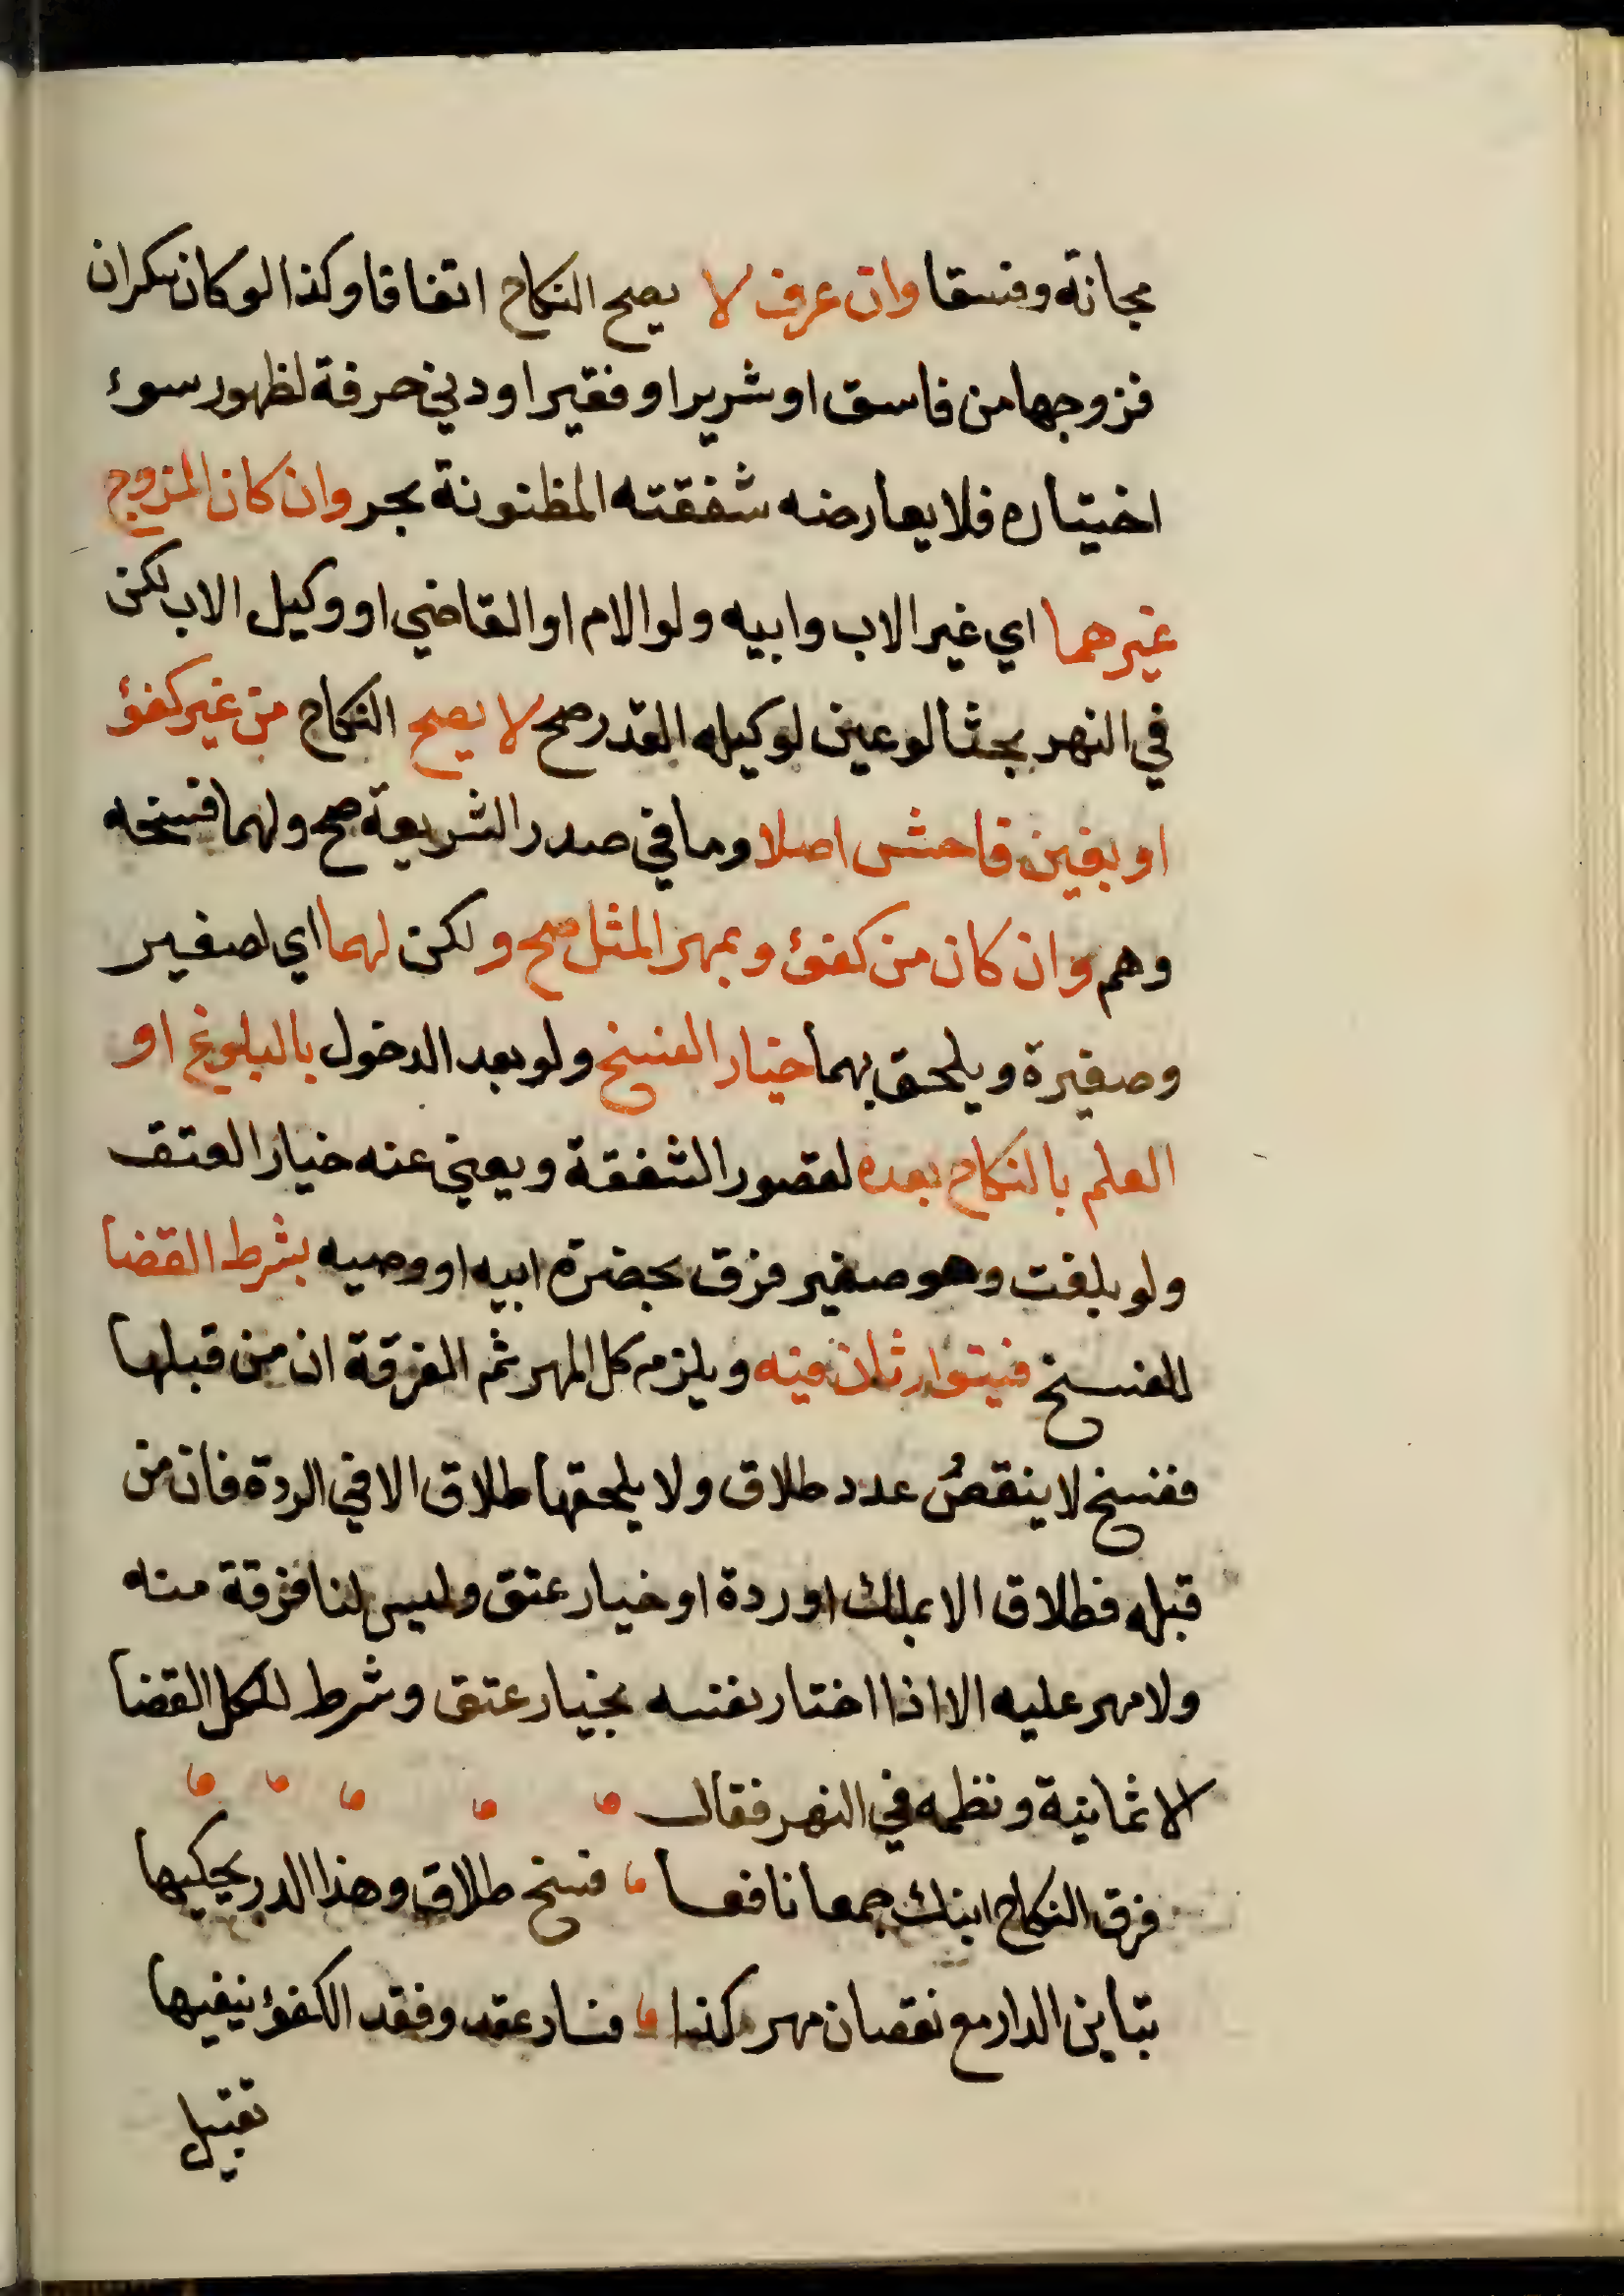 مجانة وفسقا وان عرف لا يصح النكاح اتفاقا وكذا لو كان سكران
فزوجها من فاسق او شرير او فقير او دني حرفة لظهور سوء
اختياره فلا يعارضه شفقته المظنونة بحر وان كان المزوج
غيرهما اي غير الاب وابيه ولو الام او القاضي او وكيل الاب لكن
في النهر بحثا لو عين لوكيله القدر صح لا يصح النكاح من غير كفؤ
او بغبن فاحش اصلا وما في صدر الشريعة صح ولهما فسخه
وهم وان كان من كفؤ وبمهر المثل صح ولكن لهما اي لصغير
وصغيرة ويلحق بهما خيار الفسخ ولو بعد الدخول بالبلوغ او
العلم بالنكاح بعده لقصور الشفقة ويغني عنه خيار العتق
ولو بلغت وهو صغير فرق بحضرة ابيه او وصيه بشرط القضا
للفسخ فيتوارثان فيه ويلزم كل المهر ثم الفرقة ان من قبلها
ففسخ لا ينقصُ عدد طلاق ولا يلحقها طلاق الا في الردة فان من
قبله فطلاق الا بملك او ردة او خيار عتق وليس لنا فرقة منه
ولا مهر عليه الا اذا اختار نفسه بخيار عتق وشرط للكل القضا
الا ثمانية ونظمه في النهر فقال
فرق النكاح اتتك جمعا نافعا فسخ طلاق وهذا الدر يحكيها
تباين الدار مع نقصان مهر كذا فساد عقد وفقد الكفؤ ينفيها
تقبيل